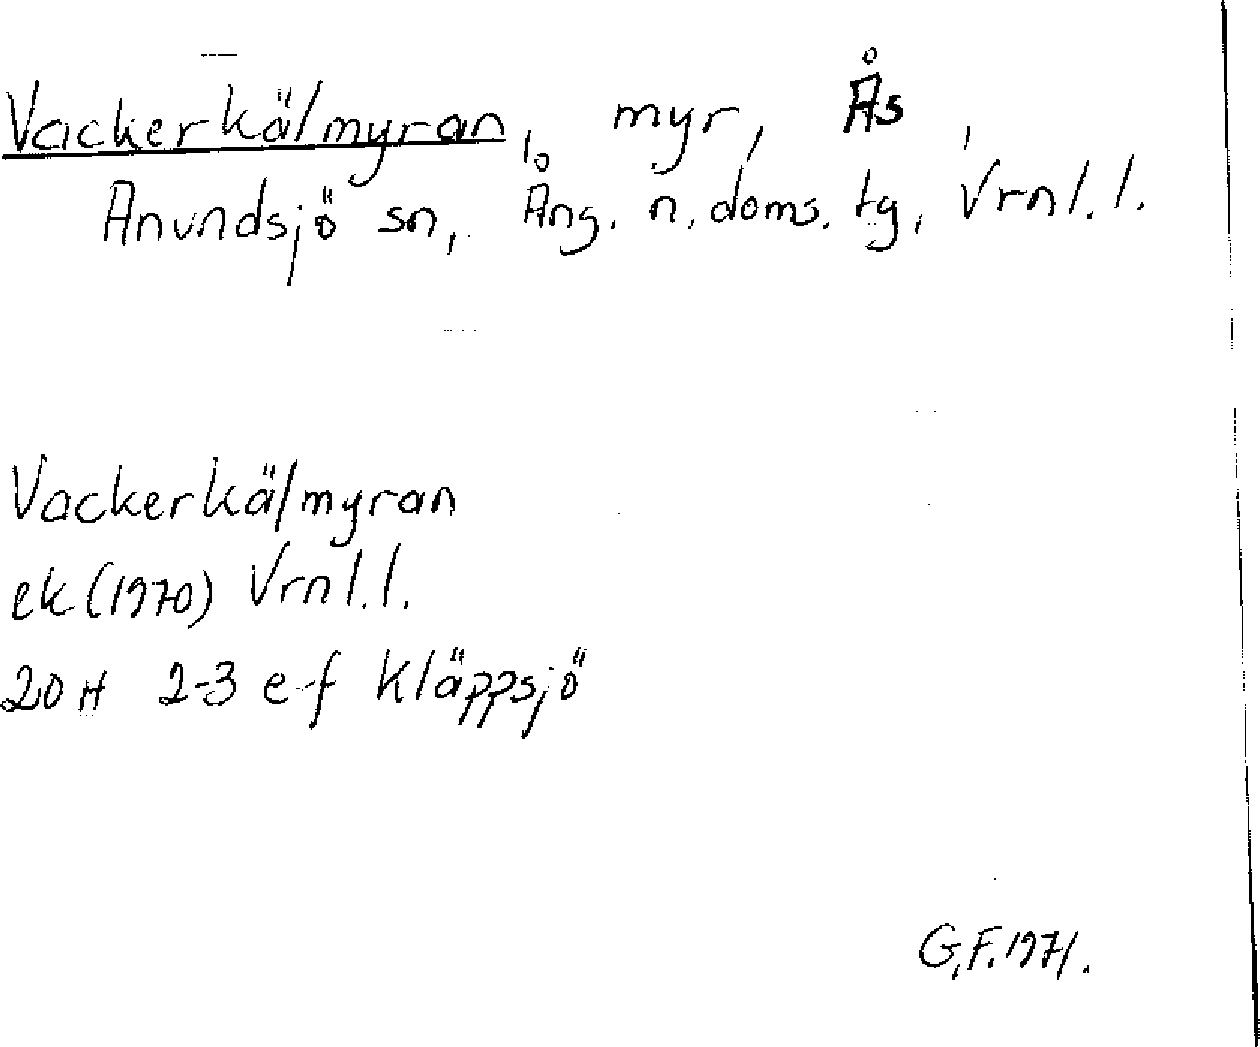 Vackerkälmyran, myr, Ås,
Anundsjö sn, Ång. n. doms. tg, Vrnl. l.
Vackerkälmyran
ek (1970) Vrnl. l.
20 H 2-3 e-f Kläppsjö
G.F. 1971.